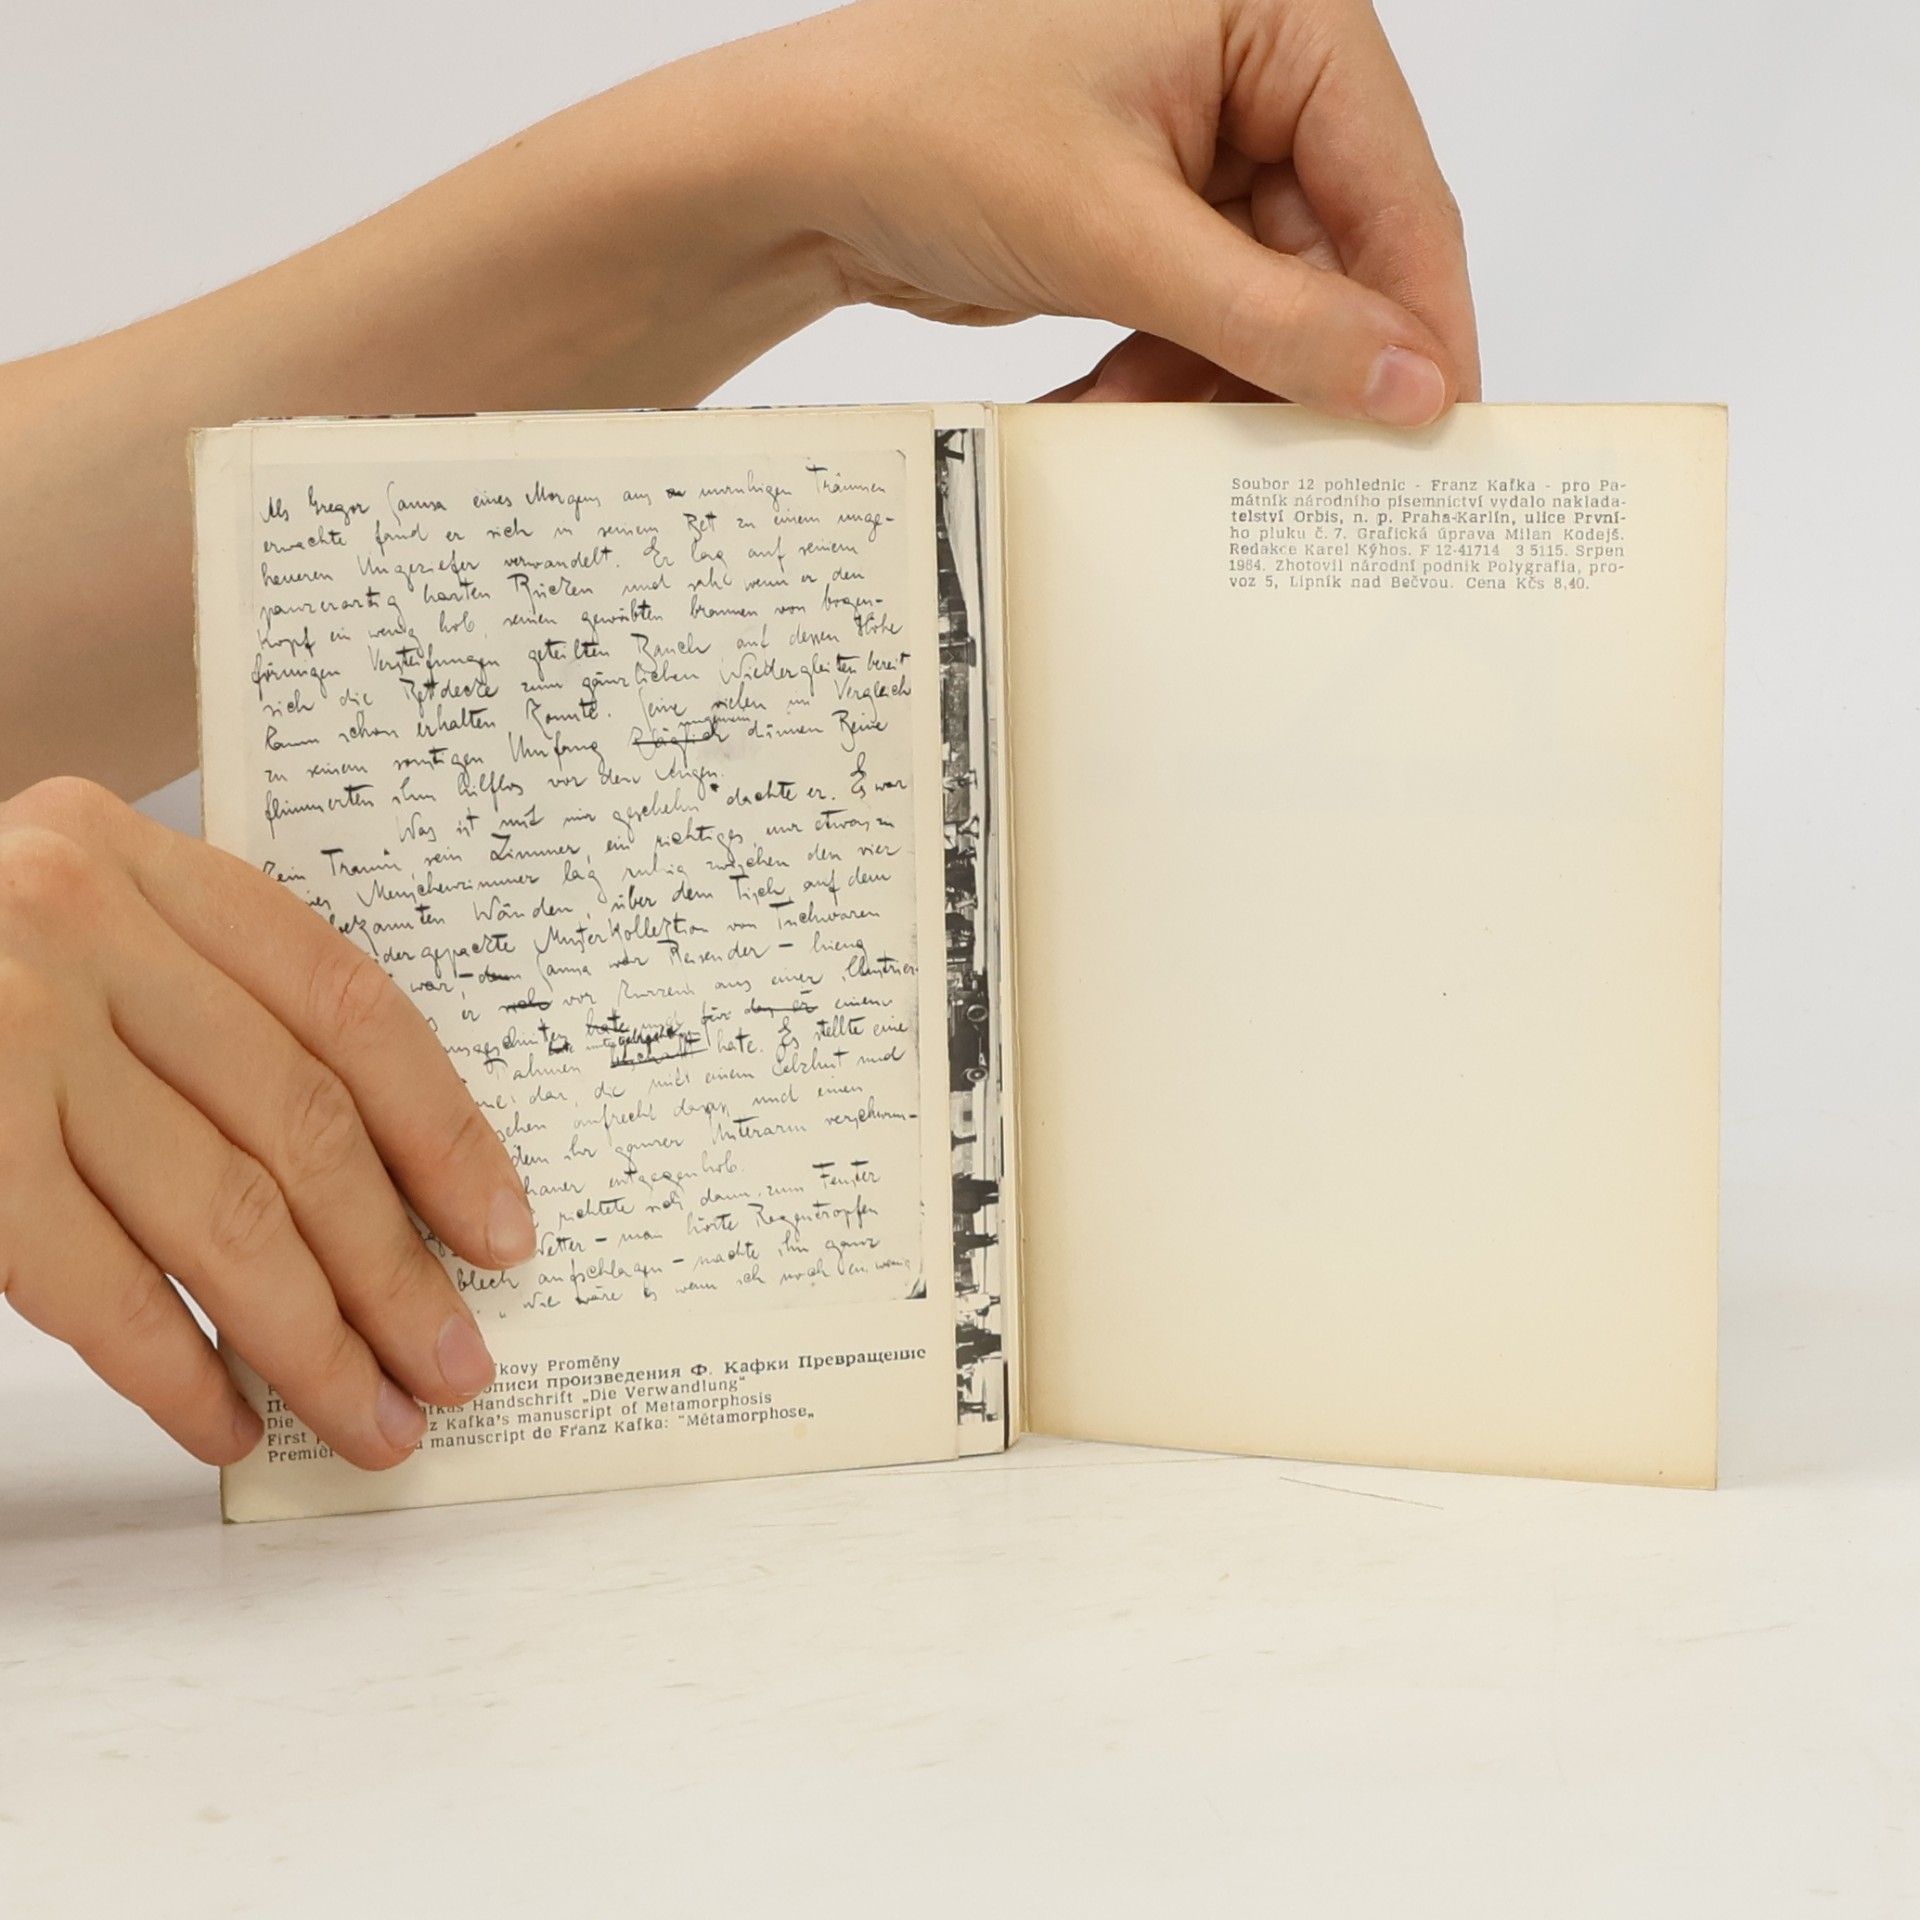 Als Gregor Samsa eines Morgens aus unruhigen Träumen
erwachte fand er sich in seinem Bett zu einem unge-
heueren Ungeziefer verwandelt. Er lag auf seinem
panzerartig harten Rücken und sah wenn er den
Kopf ein wenig hob, seinen gewölbten braunen von bogen-
förmigen Versteifungen geteilten Bauch auf dessen Höhe
sich die Bettdecke zum gänzlichen Niedergleiten bereit
kaum schon erhalten konnte. Seine vielen im Vergleich
zu seinem sonstigen Umfang kläglich dünnen Beine
flimmerten ihm hilflos vor den Augen.
Was ist mit mir geschehn" dachte er. Es war
kein Traum, sein Zimmer, ein richtiges, nur etwas zu
Menschenzimmer lag ruhig zwischen den vier
bekannten Wänden, über dem Tisch, auf dem
der gepackte Musterkollektion von Tuchwaren
war, – Samsa war Reisender – hieng
er vor Kurzem aus einer illustrier-
ausgeschnitten für einem
Rahmen hate. Es stellte eine
dar, die mit einem Pelzhut und
aufrecht dasass und einen
dem ihr ganzer Unterarm verschwun-
entgegenhob.
richtete sich dann zum Fenster
Wetter – man hörte Regentropfen
blech aufschlagen – machte ihn ganz
„Wie wäre es wenn ich noch ein wenig
kovy Proměny
описи произведения Ф. Кафки Превращение
Die afkas Handschrift „Die Verwandlung"
First z Kafka's manuscript of Metamorphosis
Premièr manuscript de Franz Kafka: "Métamorphose„
Soubor 12 pohlednic - Franz Kafka - pro Pa-
mátník národního písemnictví vydalo naklada-
telství Orbis, n. p. Praha-Karlín, ulice První-
ho pluku č. 7. Grafická úprava Milan Kodejš.
Redakce Karel Kýhos. F 12-41714 3 5115. Srpen
1964. Zhotovil národní podnik Polygrafia, pro-
voz 5, Lipník nad Bečvou. Cena Kčs 8,40.